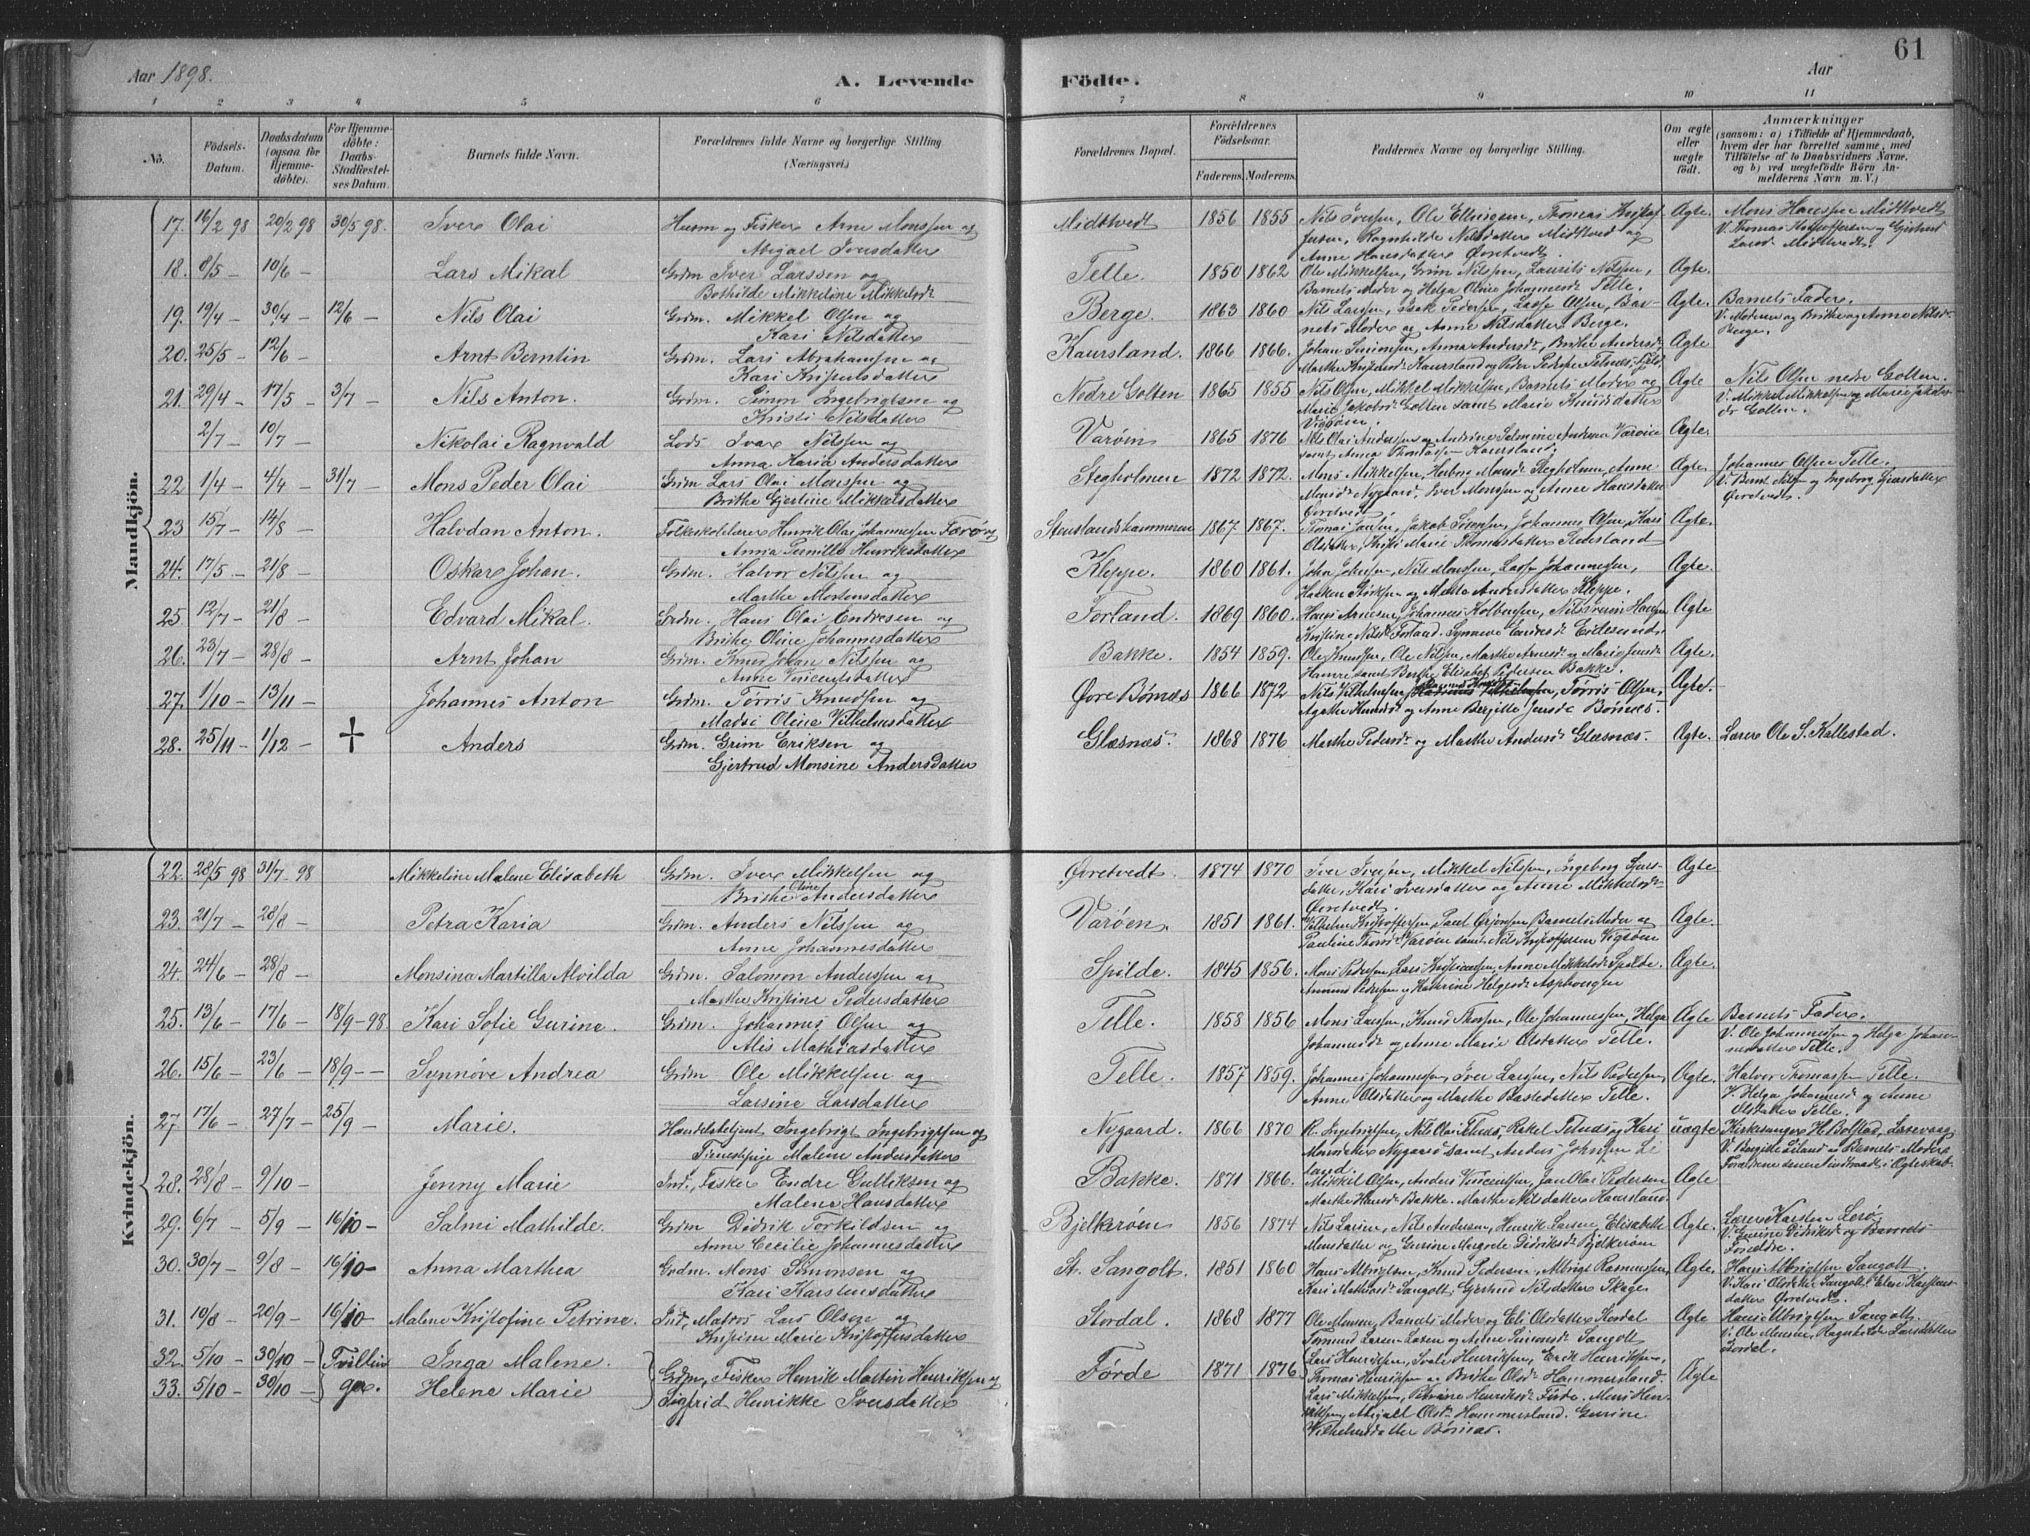 61
Aar 1898.
A. Levende Födte.
Aar
1 2 3 4 5 6 7 8 9 10 11
No.
Födsels-Datum.
Daabsdatum (ogsaa for Hjemme-döbte).
For Hjemme-döbte: Daabs-Stadfæstel-ses Datum.
Barnets fulde Navn.
Forældrenes fulde Navne og borgerlige Stilling (Næringsvei.)
Forældrenes Bopæl.
Forældrenes Födselsaar.
Faderens. Moderens.
Faddernes Navne og borgerlige Stilling.
Om ægte eller uægte födt.
Anmærkninger
(saasom: a) i Tilfælde af Hjemmedaab, hvem der har forrettet samme, med Tilföielse af to Daabsvidners Navne, og b) ved uægtefödte Börn An-melderens Navn m. V.)
Mandkjön.
17. 16/2 98 20/2 98 30/5 98. Iver Olai Husm og Fisker Arne Monssen og Midttvedt 1856 1855 Nils Iversen, Ole Ellingsen, Thomas Kristof Ægte. Mons Hanssen Midttvedt
Abigael Iversdatter fersen, Ragnhilde Nilsdatter Midttved og V. Thomas Kristoffersen og Gjertrud
Anne Hansdatter Øvretvedt Midttvedt.
18. 8/5 – 10/6 – Lars Mikal Grdm Iver Larssen og Telle. 1850 1862 Ole Mikkelsen, Grim Nilssen, Laurits Nilssen, Ægte.
Bothilde Mikkeline Mikkelsdr Barnets Moder og Helga Oline Johannesdr Telle.
19. 19/4 – 30/4 – 12/6 – Nils Olai Grdm. Mikkel Olsen og Berge. 1863 1860 Nils Larsen, Isak Pedersen, Lasse Olsen, Bar- Ægte. Barnets Fader.
Kari Nilsdatter nets Moder og Anne Nilsdatter Berge. V. Moderen og Brithe og Anne Nilsdr Berge.
20. 25/5 – 12/6 – Arnt Berntin Grdm. Lars Abrahamsen og Kaursland. 1866 1866. Johan Simonsen, Anna Andersdr, Brithe Andersdr, Ægte
Kari Knutsdatter
21. 29/4 – 17/5 – 3/7 – Nils Anton. Grdm. Simon Ingebrigtsen og Nedre Golten 1865 1855 Nils Olsen, Mikkel Mikkelsen, Barnets Moder og Ægte Nils Olsen nedre Golten.
Kristi Nilsdatter Marie Jakobsdr Golten samt Marie Knudsdatter V. Mikkel Mikkelsen og Marie Jakobs-dr Golten.
2/7 – 10/7 – Nikolai Ragnvald Lods Ivar Nilssen og Varöen 1865 1876 Nils Olai Anderssen og Andrine Salmine Andersen Varöen Ægte.
Anna Karia Andersdatter samt Anna Thomassen Kaursland.
22 1/4 – 4/4 – 31/7 – Mons Peder Olai Grdm Lars Olai Monssen og Stegholmen 1872 1872. Mons Mikkelsen, Monsdr Stegholmen, Anne Ægte. Johannes Olsen Telle.
Brithe Gjertine Mikkelsdatter Monsdr Nygaard, Iver Monssen og Anne Hansdatter Øvretvedt V. Bernt Nilsen og Ingeborg Sjursdatter Øvretvedt.
23 15/7 – 14/8 – Halvdan Anton. Folkeskolelærer Henrik Olai Johannessen Færö og Stenslandshammeren 1867. 1867. Thomas Jansen, Jakob Sørensen, Johannes Olsen, Kari Ægte.
Anna Pernille Henriksdatter Olsdatter, Kristi Marie Thomasdatter
24. 17/5 – 21/8 – Oskar Johan. Grdm. Halvor Nilssen og Kleppe. 1860 1861. John Johnsen, Nils Monssen, Lasse Johannessen, Ægte.
Marthe Mortensdatter og Andersdatter Kleppe.
25 12/7 – 21/8 – Edvard Mikal. Grdm. Hans Olai Endresen og Forland. 1869 1860. Hans Arnesen, Johannes Kolbensen, Hansen Ægte
Brithe Oline Johannesdatter Kristine Nilsdr Forland. Synneve Endresdr Eidesund.
26. 23/7 – 28/8 – Arnt Johan Grdm. Knud Johan Nilssen og Bakke. 1854 1859. Ole Knudsen, Ole Nilsen, Marthe Arnesdr og Marie Jensdr Ægte.
Anne Vincentsdatter Hamre samt Berthe Elisabet Pedersen Bakke.
27. 1/10 – 13/11 – Johannes Anton Grdm. Torris Knudsen og Øvre Børnæs 1866 1872 Nils Vilhelmsen, Rasmus Knudsen, Torris Olsen, Ægte.
Madsi Oline Vilhelmsdatter Agathe Knudsdr og Anne Bergitte Jensdr Børnæs.
28. 25/11 – 1/12 – † Anders Grdm. Grim Eriksen og Glæsnæs. 1868 1876 Marthe Pedersdr og Marthe Andersdr Glæsnæs. Ægte. Lærer Ole S. Kallestad.
Gjertrud Monsine Andersdatter
Kvindekjön.
22. 28/5 98 31/7 98 Mikkeline Malene Elisabeth Grdm. Iver Mikkelsen og Øvretvedt 1874 1870 Iver Iversen, Mikkel Nilssen, Ingeborg Sjurs- Ægte
Brithe Oline Andersdatter datter, Kari Iversdatter og Anne Mikkelsdr Øvretvedt
23. 21/7 – 28/8 – Petra Karia Grdm. Anders Nilssen og Varöen. 1851 1861. Vilhelm Kristoffersen, Paul Ørjensen, Barnets Moder og Ægte.
Anne Johannesdatter Pauline Varöen samt Nils Kristoffersen Vigsöen
24. 24/6 – 28/8 – Monsina Martilla Alvilda Grdm. Salomon Anderssen og Spilde. 1845 1856. Mons Pedersen, Lars Kristiansen, Anne Mikkelsdr Spilde. Ægte
Marthe Kristine Pedersdatter Pedersen og Kathrine Helgesdr
25. 13/6 – 17/6 – 18/9 – 98 Kari Sofie Gurine. Grdm. Johannes Olsen og Telle. 1858 1856 Mons Larsen, Knud Thorsen, Ole Johannessen, Helga Ægte Barnets Fader.
Alis Mathiasdatter Johannesdr og Anne Marie Olsdatter Telle. V. Ole Johannessen og Helga Johan-nesdatter Telle.
26. 15/6 – 23/6 – 18/9 – – Synnöve Andrea Grdm Ole Mikkelsen og Telle. 1857 1859. Johannes Johannessen, Iver Larssen, Nils Pedersen, Ægte. Halvor Thomassen Telle.
Larsine Larsdatter Anne Olsdatter og Marthe Telle. V. Helga Johannesdr og Anne Olsdatter Telle.
27 17/6 – 27/7 – 25/9 – Marie. Handelsbetjent Ingebrigt Ingebrigtsen og Nygaard. 1866 1870 R. Ingebrigtsen, Nils Olai Telnæs, Rakel Telnæs og Kari uægte Kirkesanger H. Bolstad,
Tjenestepige Malene Andersdatter Monsdatter Nygaard samt Anders Johnsen Li land. V. og Barnets Moder.
28. 28/8 – 9/10 – Jenny Marie Ind., Fisker Endre Gulliksen og Bakke. 1871 1866. Mikkel Olsen, Anders Vincentsen, Jan Olai Pedersen Ægte
Malene Hansdatter Marthe Bakke. Marthe Nilsdatter Kaursland.
29. 6/7 – 5/9 – 16/10 – Salmi Mathilde. Grdm Didrik Torkildsen og Bjelkeröen 1856 1874 Nils Larsen, Nils Andersen, Henrik Larsen, Elisabethe Ægte. Lærer Karsten Lerö.
Anne Cecilie Johannesdatter Monsdatter og Gurine Margrete Didriksdr Bjelkeröen V. Gurine Didriksdr og Barnets Forældre.
30. 30/7 – 9/8 – 16/10 – Anna Marthea Grdm. Mons Simonsen og St. Sangolt. 1851 1860 Hans Albrigtsen, Knud Pedersen, Albrigt Rasmussen, Ægte. Hans Albrigtsen Sangolt.
Kari Karstensdatter Kari Sangolt, Gjertrud Nilsdatter Skage V. Kari Sangolt, Karstens-datter Øvretvedt.
31. 10/8 – 20/9 – 16/10 Malene Kristofine Petrine. Ind, Matros Lars Olsen og Stordal. 1868 1877 Ole Monsen, Barnets Moder og Eli Olsdatter Stordal Ægte Hans Albrigtsen Sangolt.
Kristine Marie Kristoffersdatter Tormund Larsen Sangolt V. Ole Monsen, Ragnhilde Larsdatter Stordal.
32. 5/10 – 30/10 – Tvillin- Inga Malene. Grdm, Fisker Henrik Martin Henriksen og Förde 1871 1876. Lars Henriksen, Henriksen, Erik Henriksen, Ægte
33. 5/10 – 30/10 – ger. Helene Marie Sigfrid Henrikke Iversdatter Thomas Henriksen og Brithe Olsdr Hammersland.
Lars Mikkelsen, Henriksdr Förde. Mons Hen-
riksen, Abigael Olsdr Hammersland. Gurine
Vilhelmsdatter Börnæs.